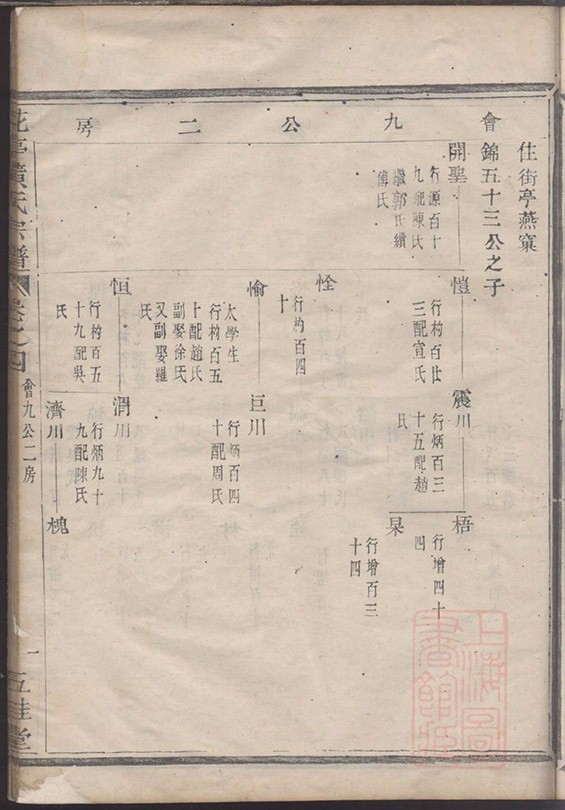 會九公二房
住街亭燕窠
錦五十三公之子
開聖
行源百十
九配陳氏
繼郭氏續
傅氏
愷
行杓百廿
三配宣氏
震川
行炳百三
十五配趙
氏
梧
行增四十
四
杲
行增百三
十四
恮
行杓百四
十
愉
太學生
行杓百五
十配趙氏
副娶徐氏
又副娶羅
氏
巨川
行炳百四
十配周氏
恒
行杓百五
十九配吳
氏
潤川
行炳九十
九配陳氏
濟川
槐
氏宗譜
卷之四
會九公二房
一
五桂堂
上海圖書館藏